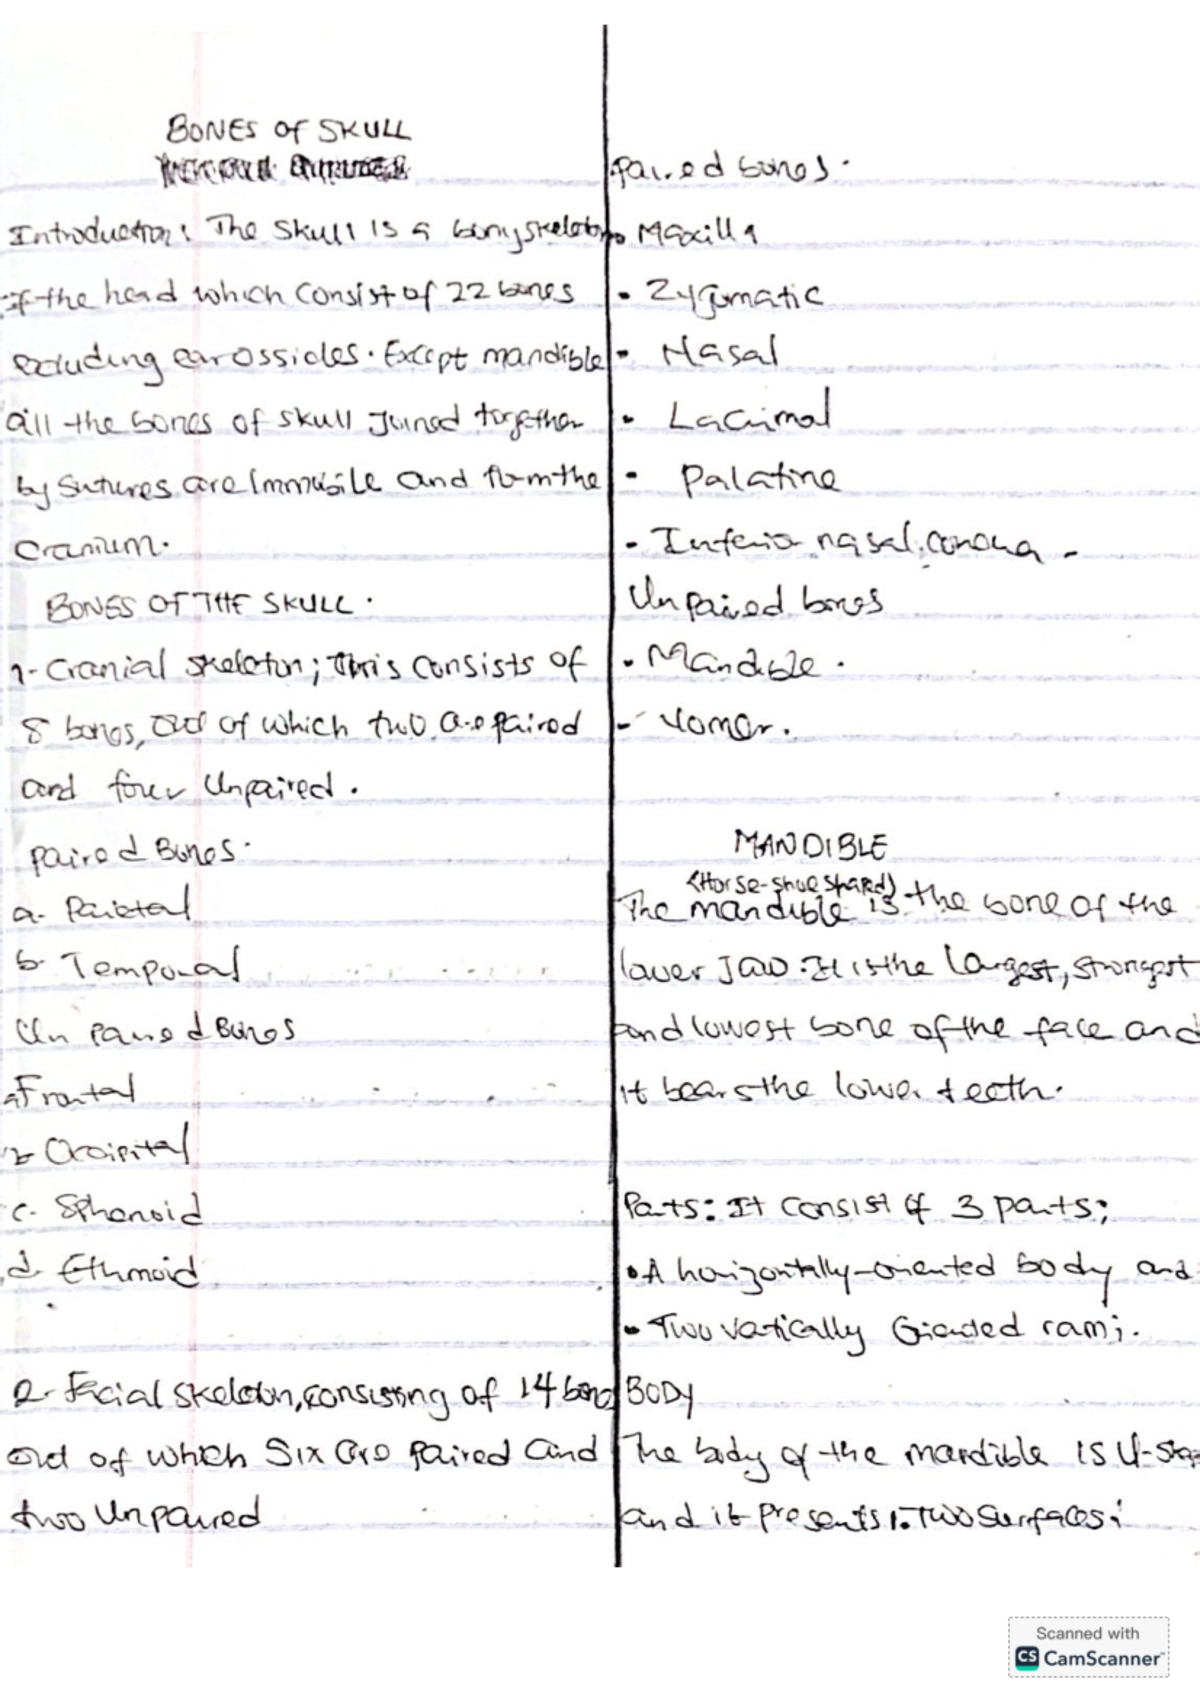 BONES OF SKULL
Introduction: The skull is a bony skeleton
of the head which consist of 22 bones
excluding ear ossicles. Except mandible
all the bones of skull joined together
by sutures are immobile and form the
cranium.
BONES OF THE SKULL.
1- Cranial skeleton; this consists of
8 bones, out of which two are paired
and four unpaired.
paired Bones.
a- Parietal
b- Temporal
Unpaired Bones
a- Frontal
b- Occipital
c- Sphenoid
d- Ethmoid
2- Facial skeleton, consisting of 14 bones
out of which six are paired and
two unpaired
paired bones.
• Maxilla
• Zygomatic
• Nasal
• Lacrimal
- Palatine
- Inferior nasal concha -
Unpaired bones
• Mandible.
- Vomer.
MANDIBLE
(Horse-shoe shaped)
The mandible is the bone of the
lower jaw. It is the largest, strongest
and lowest bone of the face and
it bears the lower teeth.
Parts: It consist of 3 parts;
• A horizontally-oriented body and
• Two vertically oriented rami.
BODY
The body of the mandible is U-shap
and it presents 1. Two surfaces:
Scanned with
CS CamScanner